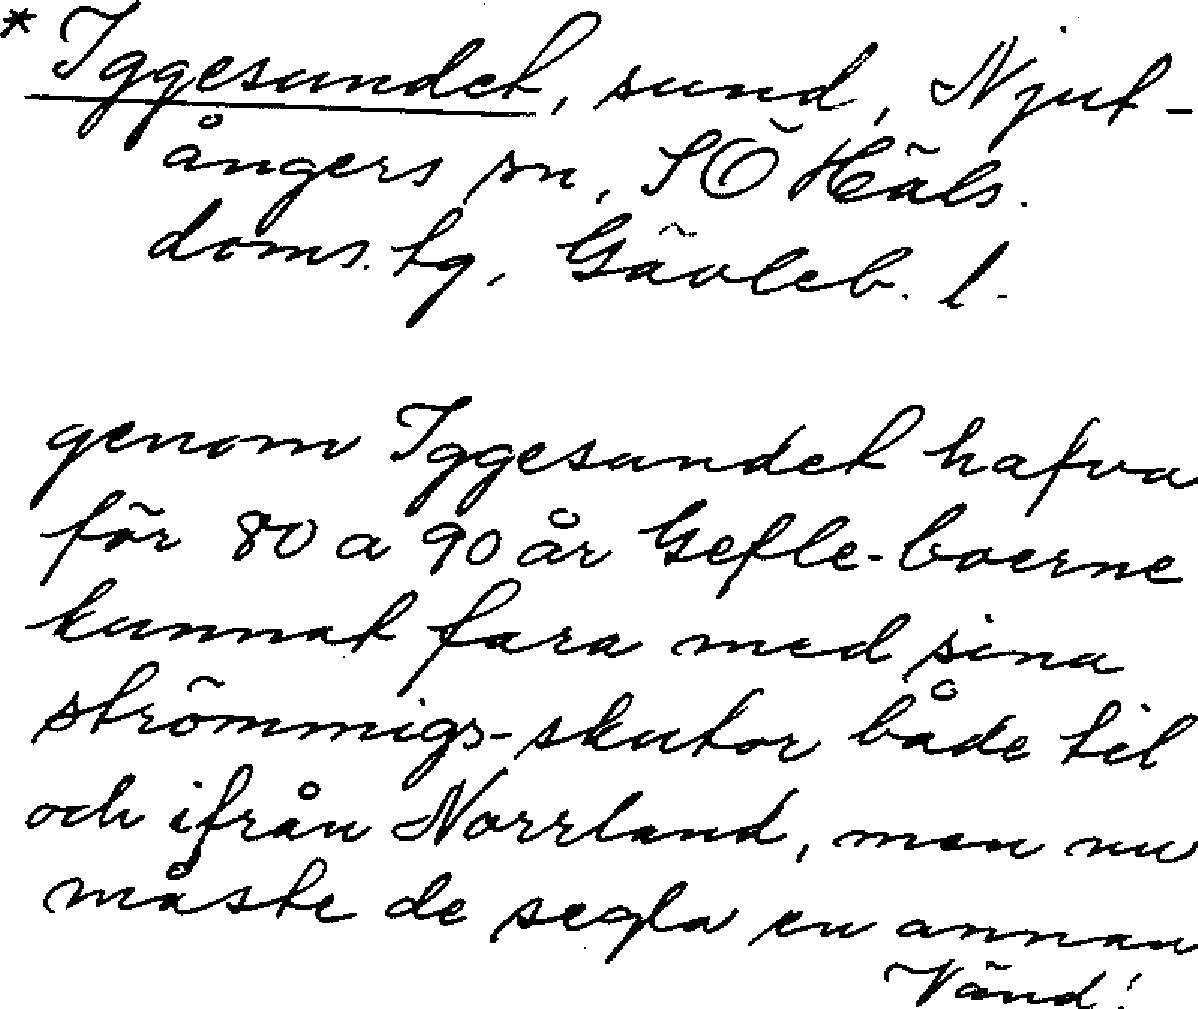 * Iggesundet, sund, Njut-
ångers sn, SÖ Häls.
doms. tg, Gävleb. l.
genom Iggesundet hafva
för 80 a 90 år Gefle-boerne
kunnat fara med sina
strömmigs-skutor både til
och ifrån Norrland, men nu
måste de segla en annan
Vänd!